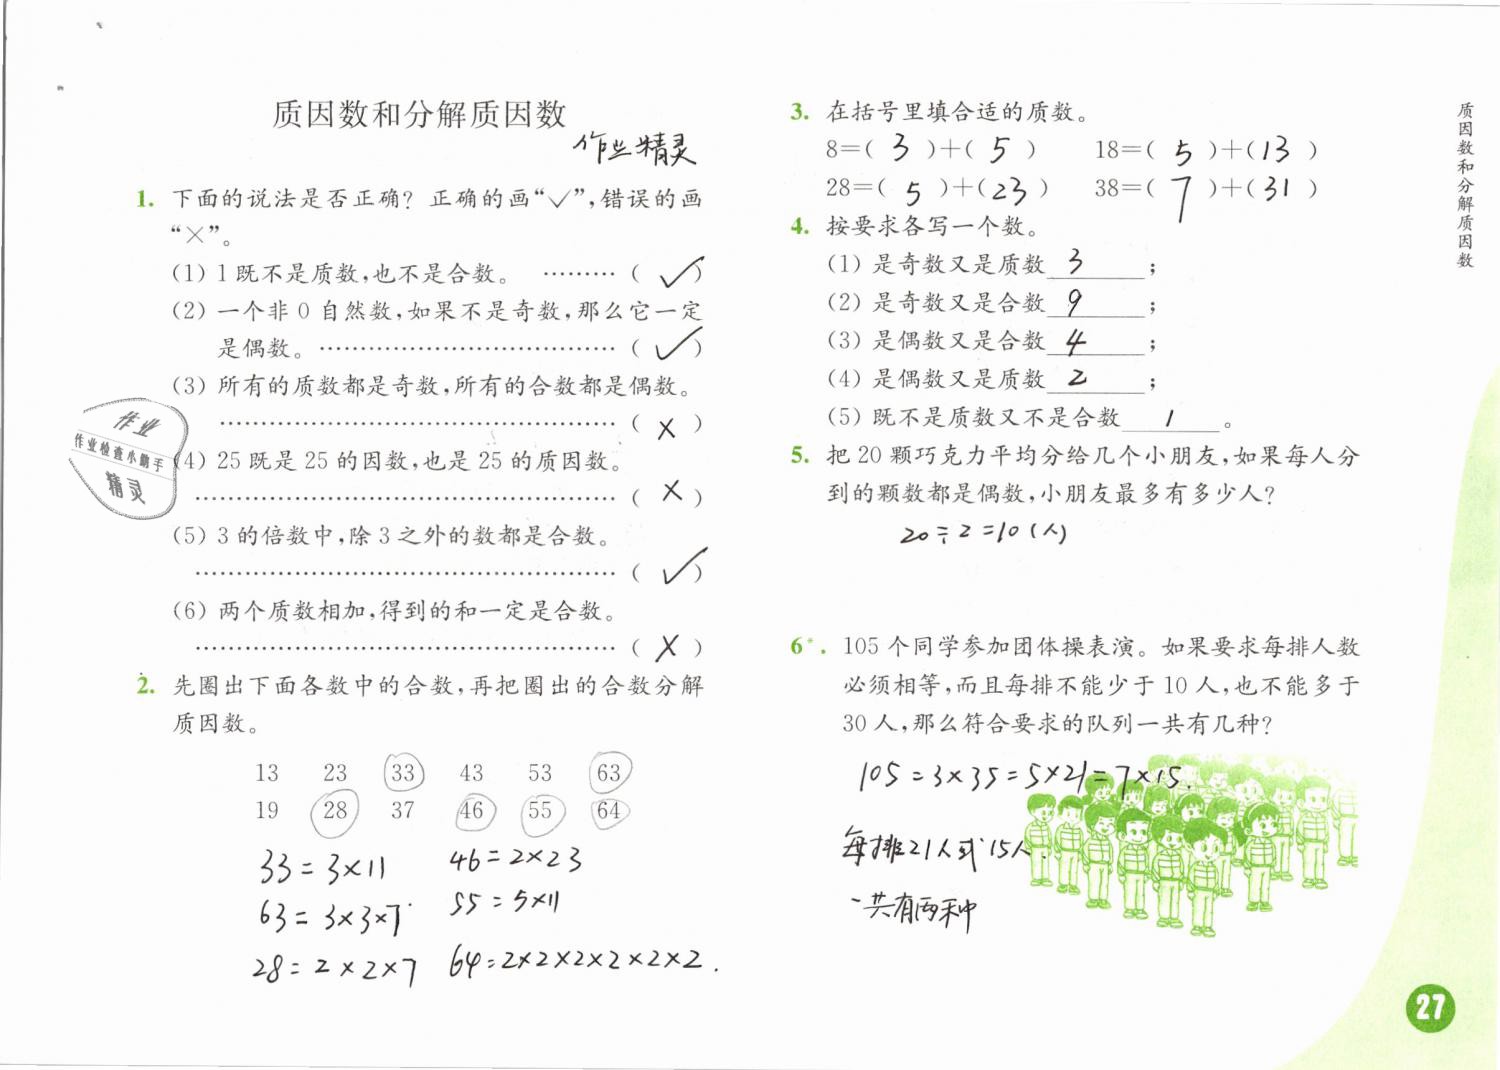 质因数和分解质因数
作业精灵
1. 下面的说法是否正确？正确的画“✓”，错误的画
“×”。
(1) 1既不是质数，也不是合数。 ………( ✓ )
(2) 一个非0自然数，如果不是奇数，那么它一定
是偶数。……………………………( ✓ )
(3) 所有的质数都是奇数，所有的合数都是偶数。
……………………………………( × )
(4) 25既是25的因数，也是25的质因数。
……………………………………( × )
(5) 3的倍数中，除3之外的数都是合数。
……………………………………( ✓ )
(6) 两个质数相加，得到的和一定是合数。
……………………………………( × )
作业
作业检查小助手
精灵
2. 先圈出下面各数中的合数，再把圈出的合数分解
质因数。
13 23 33 43 53 63
19 28 37 46 55 64
33=3×11 46=2×23
63=3×3×7 55=5×11
28=2×2×7 64=2×2×2×2×2×2.
3. 在括号里填合适的质数。
8=( 3 )+( 5 ) 18=( 5 )+( 13 )
28=( 5 )+( 23 ) 38=( 7 )+( 31 )
4. 按要求各写一个数。
(1) 是奇数又是质数 3 ；
(2) 是奇数又是合数 9 ；
(3) 是偶数又是合数 4 ；
(4) 是偶数又是质数 2 ；
(5) 既不是质数又不是合数 1 。
5. 把20颗巧克力平均分给几个小朋友，如果每人分
到的颗数都是偶数，小朋友最多有多少人？
20÷2=10(人)
6*. 105个同学参加团体操表演。如果要求每排人数
必须相等，而且每排不能少于10人，也不能多于
30人，那么符合要求的队列一共有几种？
105=3×35=5×21=7×15.
每排21人或15人.
一共有两种
质因数和分解质因数
27